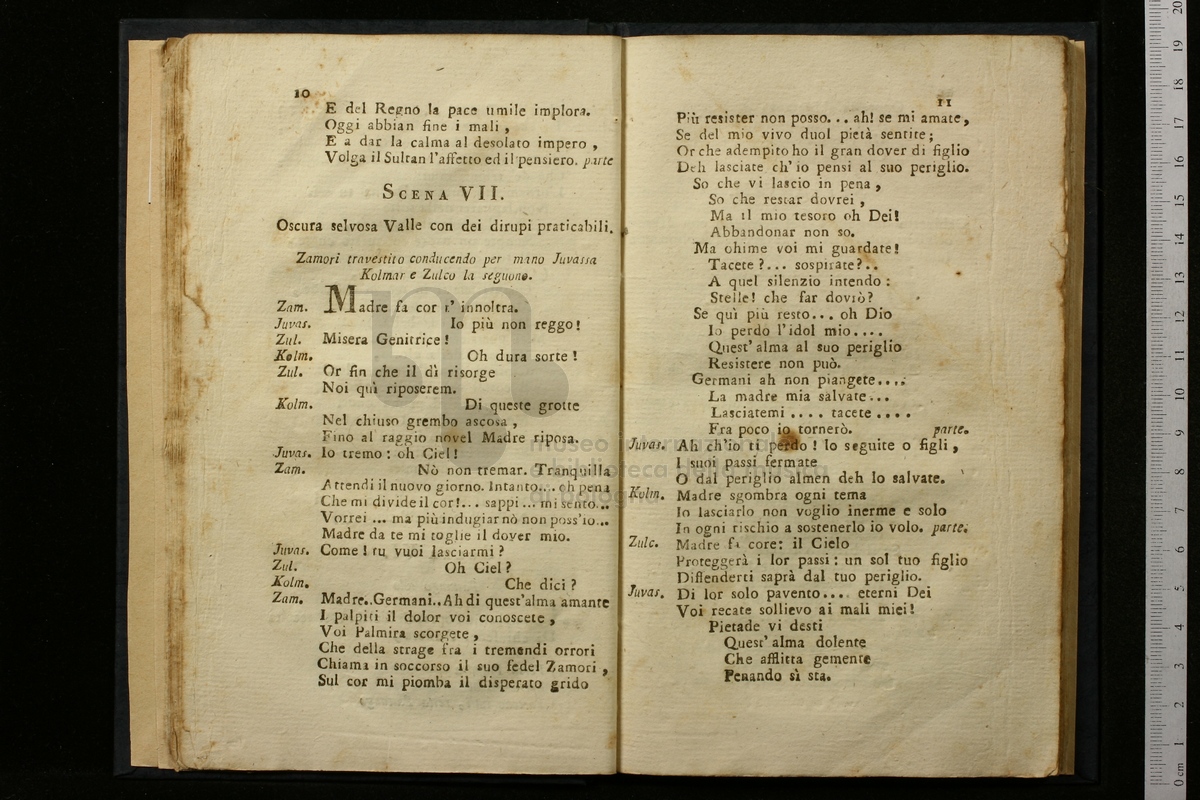 10
E del Regno la pace umile implora.
Oggi abbian fine i mali ,
E a dar la calma al desolato impero ,
Volga il Sultan l'affetto ed il pensiero. parte
SCENA VII.
Oscura selvosa Valle con dei dirupi praticabili.
Zamori travestito conducendo per mano Juvassa
Kolmar e Zulco la seguono.
Zam. Madre fa cor t' innoltra.
Juvas. Io più non reggo!
Zul. Misera Genitrice!
Kolm. Oh dura sorte!
Zul. Or fin che il dì risorge
Noi quì riposerem.
Kolm. Di queste grotte
Nel chiuso grembo ascosa ,
Fino al raggio novel Madre riposa.
Juvas. Io tremo: oh Ciel!
Zam. Nò non tremar. Tranquilla
Attendi il nuovo giorno. Intanto... oh pena
Che mi divide il cor!... sappi ... mi sento...
Vorrei ... ma più indugiar nò non poss'io...
Madre da te mi toglie il dover mio.
Juvas. Come! tu vuoi lasciarmi?
Zul. Oh Ciel?
Kolm. Che dici?
Zam. Madre..Germani..Ah di quest'alma amante
I palpiti il dolor voi conoscete ,
Voi Palmira scorgete ,
Che della strage fra i tremendi orrori
Chiama in soccorso il suo fedel Zamori ,
Sul cor mi piomba il disperato grido
11
Più resister non posso... ah! se mi amate,
Se del mio vivo duol pietà sentite;
Or che adempito ho il gran dover di figlio
Deh lasciate ch' io pensi al suo periglio.
So che vi lascio in pena ,
So che restar dovrei ,
Ma il mio tesoro oh Dei!
Abbandonar non so.
Ma ohime voi mi guardate!
Tacete?... sospirate?..
A quel silenzio intendo:
Stelle! che far dovrò?
Se quì più resto... oh Dio
Io perdo l'idol mio....
Quest'alma al suo periglio
Resistere non può.
Germani ah non piangete....
La madre mia salvate...
Lasciatemi .... tacete ....
Fra poco io tornerò. parte.
Juvas. Ah ch'io ti perdo! lo seguite o figli ,
I suoi passi fermate
O dal periglio almen deh lo salvate.
Kolm. Madre sgombra ogni tema
Io lasciarlo non voglio inerme e solo
In ogni rischio a sostenerlo io volo. parte.
Zulc. Madre fa core: il Cielo
Proteggerà i lor passi: un sol tuo figlio
Diffenderti saprà dal tuo periglio.
Juvas. Di lor solo pavento.... eterni Dei
Voi recate sollievo ai mali miei!
Pietade vi desti
Quest' alma dolente
Che afflitta gemente
Penando sì sta.
museo internazionale
e biblioteca della musica
di bologna
0 cm 1 2 3 4 5 6 7 8 9 10 11 12 13 14 15 16 17 18 19 20